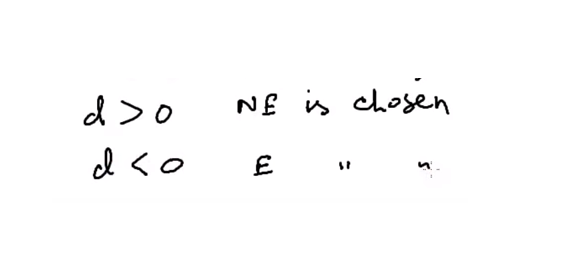 d > 0 NE is chosen
d < 0 E " "